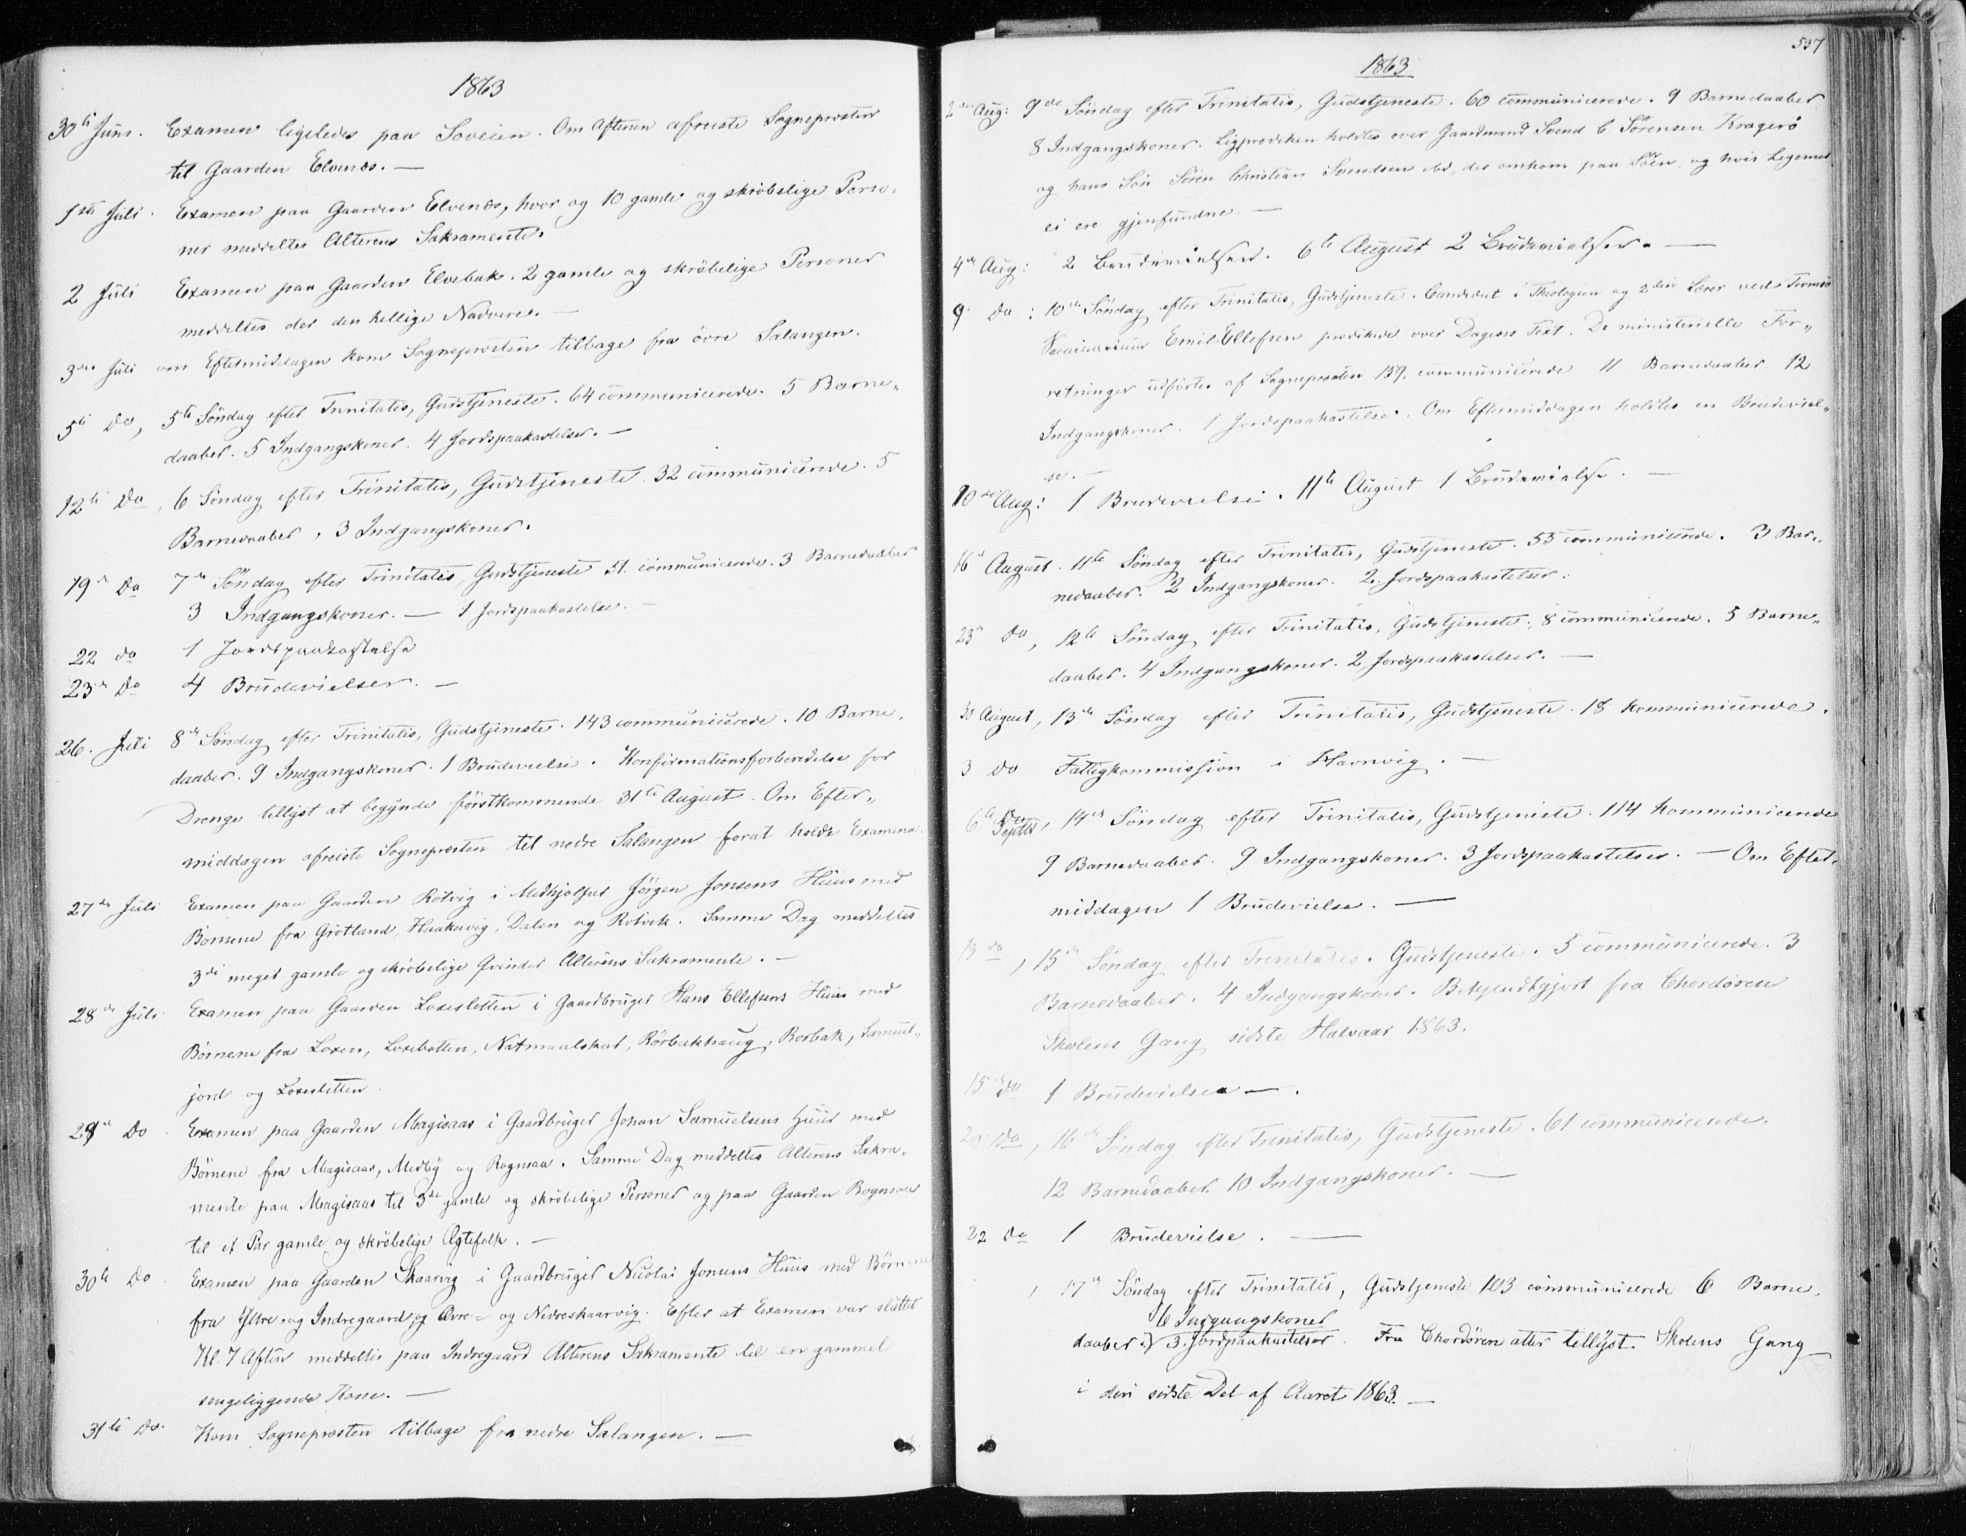 1863
30te Juni. Examen ligeledes paa Soveien. Om Aftenen afreiste Sogneprosten
til Gaarden Elvenes. —
1ste Juli. Examen paa Gaarden Elvenes, hvor og 10 gamle og skröbelige Perso-
ner meddeltes Alterens Sakramente.
2 Juli Examen paa Gaarden Elvebak. 2 gamle og skröbelige Personer
meddeltes der den hellige Nadvere. —
3die Juli om Eftermiddagen kom Sognepresten tilbage fra övre Salangen.
5te Do, 5te Söndag efter Trinitatis, Gudstjeneste. 64 communicerede. 5 Barne„
daaber. 5 Indgangskoner. 4 Jordspaakastelser. —
12te Do, 6 Söndag efter Trinitatis, Gudstjeneste. 32 communicerede. 5
Barnedaaber, 3 Indgangskoner.
19de Do 7de Söndag efter Trinitatis, Gudstjeneste 51. communicerede. 3 Barnedaaber
3 Indgangskoner. — 1 Jordspaakastelse. —
22 do 1 Jordspaakastelse
23de Do 4 Brudevielser. —
26. Juli 8de Söndag efter Trinitatis, Gudstjeneste. 143 communicerede. 10 Barne„
daaber. 9 Indgangskoner. 1 Brudevielse. Konfirmationsforberedelse for
Drenge tillyst at begynde förstkommende 31te August. Om Efter„
middagen afreiste Sognepresten til nedre Salangen forat holde Examina.
27de Juli Examen paa Gaarden Rotvig i Jörgen Jonsens Huus med
Börnene fra Grötland, Haakavig, Dalen og Rotvik. Samme Dag meddeltes
3de meget gamle og skröbelige Qvinder Alterens Sakramente. —
28de Juli Examen paa Gaarden Loxesletten i Gaardbruger Hans Ellefsens Huus med
Börnene fra Loxen, Loxebotten, Natmaalskat, Rörbakhaug, Rorbak, Samuel„
jord og Loxesletten.
29de Do Examen paa Gaarden Magisaas i Gaardbruger Johan Samuelsens Huus med
Börnene fra Magisaas, Medby og Rognsaa. Samme Dag meddeltes Alterens Sakra„
mente paa Magisaas til 3de gamle og skröbelige Personer og paa Gaarden Rognsaa
til et Par gamle og skröbelige Ægtefolk. —
30te Do Examen paa Gaarden Skaarvig i Gaardbruger Nicolai Jonsens Huus med Börnene
fra Yttre- og Indregaard, og Øvre- og Nedreskaarvig. Efter at Examen var sluttet
Kl. 7 Aften meddeltes paa Indregaard Alterens Sakramente til en gammel
sengeliggende Kone. —
31te Do. Kom Sognepresten tilbage fra nedre Salangen. —
537
1863
2den Aug: 9de Söndag efter Trinitatis, Gudstjeneste. 60 communicerede. 9 Barnedaaber
8 Indgangskoner. Ligprædiken holdtes over Gaardmand Svend C Sörensen Kragerö
og hans Sön Sören Christian Svendsen ibd, der omkom paa Söen, og hvis Legemer
ei ere gjenfundne. —
4de Aug: 2 Brudevielser. 6te August 2 Brudevielser. —
9de Do: 10de Söndag efter Trinitatis, Gudstjeneste. Candidat i Theologien og 2den Lærer ved Tromsö
Seminarium Emil Ellefsen prædikede over Dagens Text. De ministerielle For„
retninger udförtes af Sognepresten 159. communicerede 11 Barnedaaber. 12
Indgangskoner. 1 Jordspaakastelse. Om Eftermiddagen holdtes en Brudeviel„
se. —
10de Aug: 1 Brudevielse. 11te August 1 Brudevielse. —
16de August. 11te Söndag efter Trinitatis, Gudstjeneste. 53 communicerede. 3 Bar„
nedaaber. 2 Indgangskoner. 2. Jordspaakastelser.
23de Do, 12te Söndag efter Trinitatis, Gudstjeneste, 8 communicerede. 5 Barne„
daaber. 4 Indgangskoner. 2 Jordspaakastelser. —
30 August, 13de Söndag efter Trinitatis, Gudstjeneste. 18 kommunicerede.
3 Do Fattigkommission i Havnvig. —
6te Do Septbr, 14de Söndag efter Trinitatis, Gudstjeneste. 114 kommunicerede
9 Barnedaaber. 9 Indgangskoner. 3 Jordspaakastelser. — Om Efter„
middagen 1 Brudevielse. —
13 do, 15de Söndag efter Trinitatis. Gudstjeneste. 5 communicerede. 3
Barnedaaber. 4 Indgangskoner. Bekjendtgjort fra Chordören
Skolens Gang sidste Halvaar 1863.
15de Do 1 Brudevielse —.
20 Do, 16de Söndag efter Trinitatis, Gudstjeneste. 61 communicerede.
12 Barnedaaber. 10 Indgangskoner. —
22 Do 1 Brudevielse. —
, 17de Söndag efter Trinitatis, Gudstjeneste 103 communicerede 6 Barne„
6 Indgangskoner
daaber. 3. Jordspaakastelser. Fra Chordören atter tillyst Skolens Gang
i den sidste Del af Aaret 1863. —